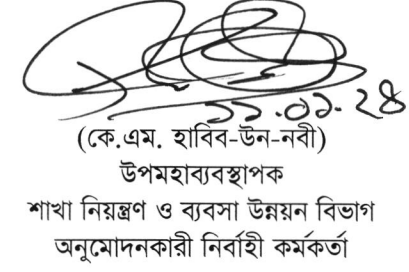 ১১.০১.২৪
(কে.এম. হাবিব-উন-নবী)
উপমহাব্যবস্থাপক
শাখা নিয়ন্ত্রণ ও ব্যবসা উন্নয়ন বিভাগ
অনুমোদনকারী নির্বাহী কর্মকর্তা